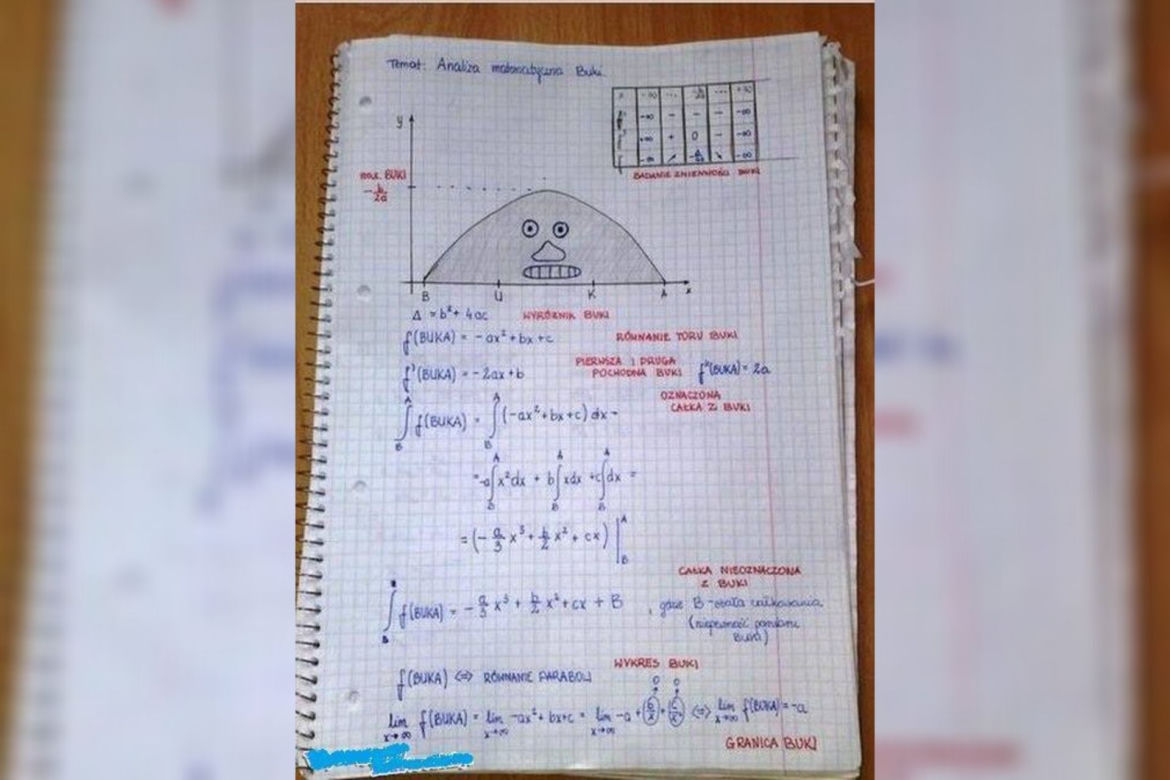 Temat: Analiza matematyczna Buki.
x -∞ ... -b/2a ... +∞
-∞ - - - -∞
+∞ + 0 - -∞
-∞ ↗ ↘ -∞
BADANIE ZMIENNOŚCI BUKI
y
max. BUKI
-b/2a
B U K A x
Δ = b² + 4ac WYRÓŻNIK BUKI
f(BUKA) = -ax² + bx + c RÓWNANIE TORU BUKI
f'(BUKA) = -2ax + b PIERWSZA I DRUGA POCHODNA BUKI f''(BUKA) = 2a
OZNACZONA CAŁKA Z BUKI
∫_B^A f(BUKA) = ∫_B^A (-ax² + bx + c) dx =
= -a∫_B^A x²dx + b∫_B^A xdx + c∫_B^A dx =
= (-a/3 x³ + b/2 x² + cx) |_B^A
CAŁKA NIEOZNACZONA
Z BUKI
∫ f(BUKA) = -a/3 x³ + b/2 x² + cx + B , gdzie B - stała całkowania
(niepewność pomiaru
Buki)
WYKRES BUKI
f(BUKA) ⇔ RÓWNANIE PARABOLI
0 0
lim x→∞ f(BUKA) = lim x→∞ -ax² + bx + c = lim x→∞ -a + b/x + c/x² ⇔ lim x→∞ f(BUKA) = -a
GRANICA BUKI